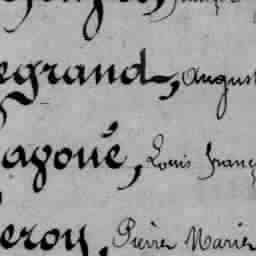 egrand, August
agoué, Louis franç
eroy, Pierre Marie